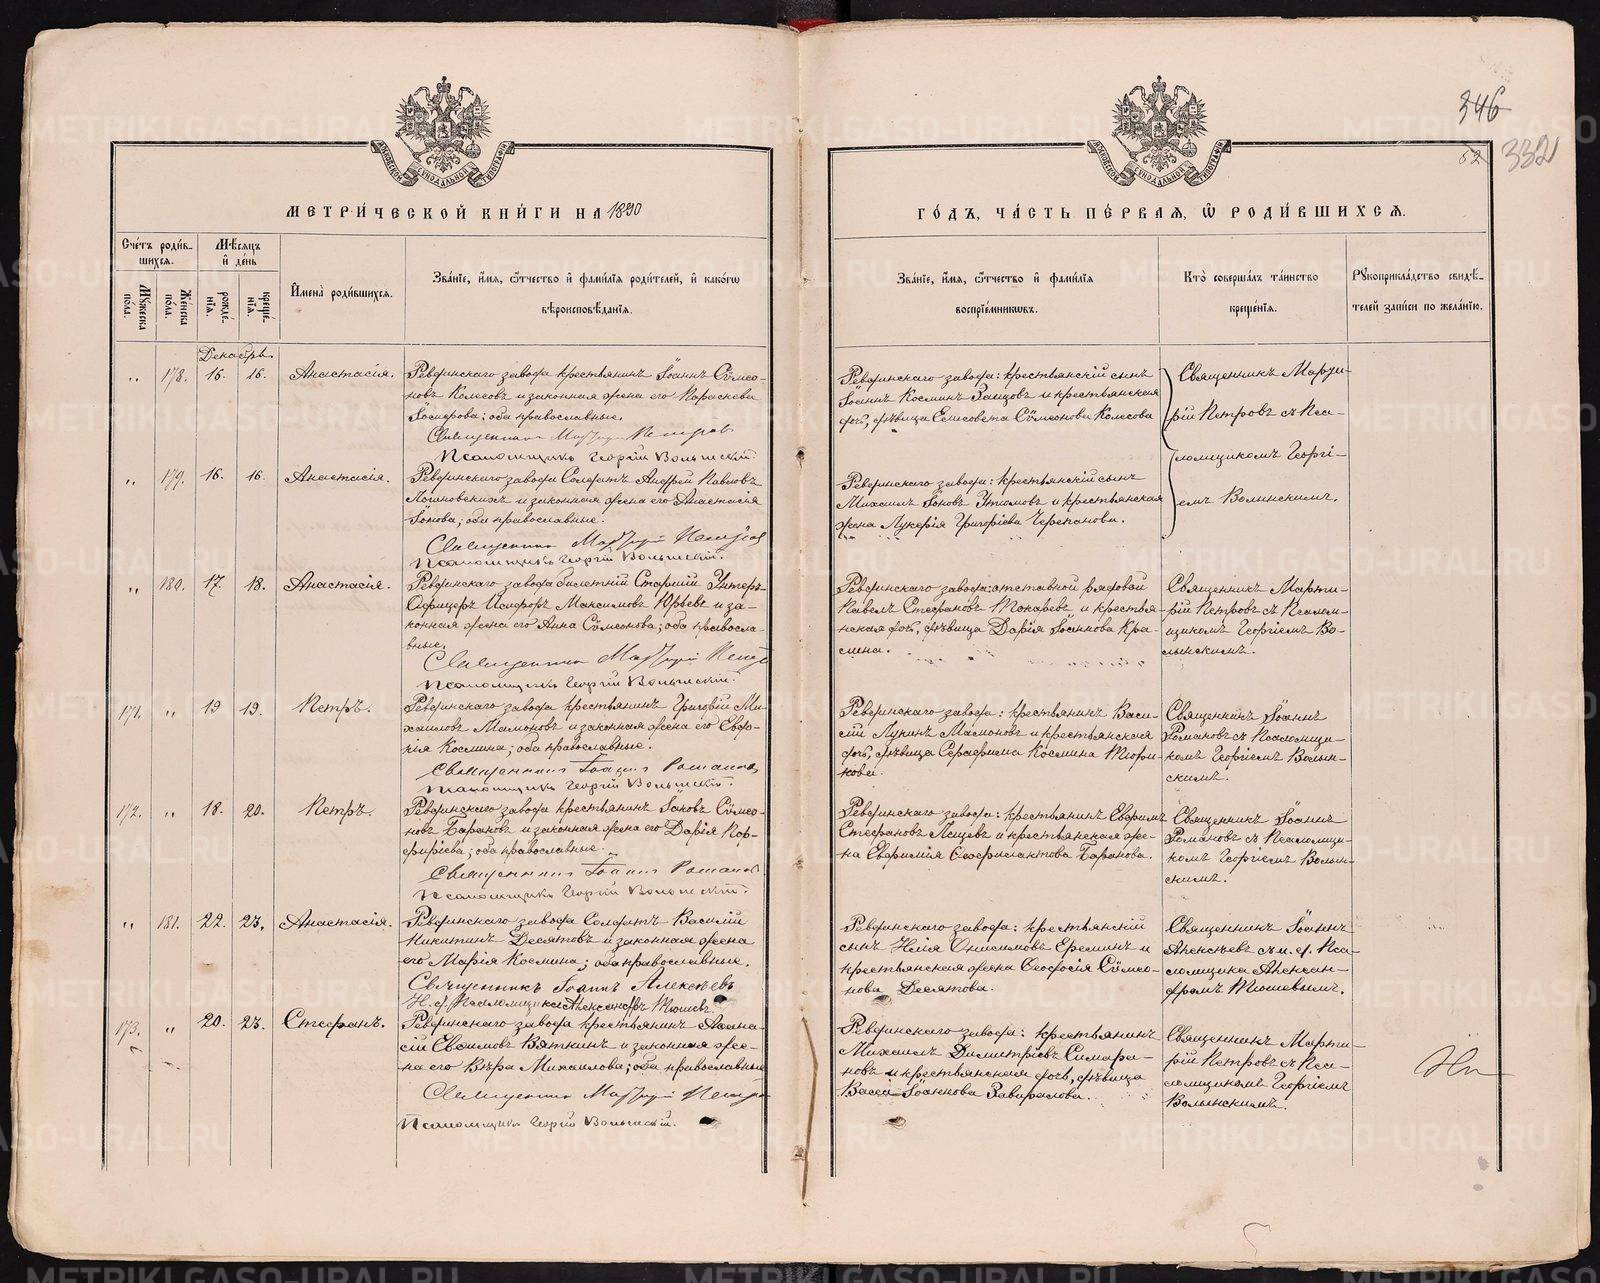 346
52 332
МЕТРИ́ЧЕСКОЙ КНИ́ГИ НА 1890
ГО́ДЪ, ЧА́СТЬ ПЕ́РВАЯ, Ѡ РОДИ́ВШИХСЯ.
Сче́тъ роди́в-
шихся.
Му́жеска по́ла.
Же́нска по́ла.
Мѣ́сяцъ
и де́нь
рожде́-
нія.
креще́-
нія.
Имена̀ роди́вшихся.
Зва́ніе, и́мя, ѻ́тчество и фами́лія роди́телей, и како́гѡ
вѣроисповѣ́данія.
Зва́ніе, и́мя, ѻ́тчество и фами́лія
воспріе́мникѡвъ.
Кто̀ соверша́лъ та́инство
креще́нія.
Рꙋкоприкла́дство свидѣ́-
телей за́писи по жела́нію.
Декабрь
„ 178. 16. 16. Анастасія.
Ревдинскаго завода крестьянинъ Іоаннъ Сѵмео-
новъ Колесовъ и законная жена его Параскева
Іосифова; оба православные.
Священникъ Мартирій Петровъ
Псаломщикъ Георгій Волынскій.
Ревдинскаго завода: крестьянскій сынъ
Іоаннъ Косминъ Заицовъ и крестьянская
дочь, дѣвица Елисовета Сѵмеонова Колесова
Священникъ Марти-
рій Петровъ съ Пса-
ломщикомъ Георгі-
емъ Волынскимъ.
„ 179. 16. 16. Анастасія.
Ревдинскаго завода Солдатъ Андрей Павловъ
Логиновскихъ и законная жена его Анастасія
Іонова; оба православные.
Священникъ Мартирій Петровъ
Псаломщикъ Георгій Волынскій.
Ревдинскаго завода: крестьянскій сынъ
Михаилъ Іоновъ Утюмовъ и крестьянская
жена Лукерія Григоріева Черепанова.
„ 180. 17. 18. Анастасія.
Ревдинскаго завода билетный Старшій Унтеръ
Офицеръ Исидоръ Максимовъ Юрьевъ и за-
конная жена его Анна Сѵмеонова; оба правосла-
вные.
Священникъ Мартирій Петровъ
Псаломщикъ Георгій Волынскій.
Ревдинскаго завода: отставной рядовой
Павелъ Стефановъ Токаревъ и крестья-
нская дочь, дѣвица Дарія Іоаннова Кра-
сина.
Священникъ Марти-
рій Петровъ съ Псалом-
щикомъ Георгіемъ Во-
лынскимъ.
171. „ 19 19. Петръ.
Ревдинскаго завода крестьянинъ Григорій Ми-
хаиловъ Мамоновъ и законная жена его Евдо-
кія Космина; оба православные.
Священникъ Іоаннъ Романовъ
Псаломщикъ Георгій Волынскій.
Ревдинскаго завода: крестьянинъ Васи-
лій Лукинъ Мамоновъ и крестьянская
дочь, дѣвица Серафима Космина Тюри-
кова.
Священникъ Іоаннъ
Романовъ съ Псаломщи-
комъ Георгіемъ Волын-
скимъ.
172. „ 18. 20. Петръ.
Ревдинскаго завода крестьянинъ Іаковъ Сѵмео-
новъ Барановъ и законная жена его Дарія Пор-
фиріева; оба православные.
Священникъ Іоаннъ Романовъ
Псаломщикъ Георгій Волынскій.
Ревдинскаго завода: крестьянинъ Евфимъ
Стефановъ Лещевъ и крестьянская же-
на Евфимія Феофилактова Баранова.
Священникъ Іоаннъ
Романовъ съ Псаломщи-
комъ Георгіемъ Волын-
скимъ.
„ 181. 22. 23. Анастасія.
Ревдинскаго завода Солдатъ Василій
Никитинъ Десятовъ и законная жена
его Марія Космина; оба православные.
Священникъ Іоаннъ Алексѣевъ
И. д. Псаломщика Александръ Тюшевъ.
Ревдинскаго завода: крестьянскій
сынъ Илія Онисимовъ Ереминъ и
крестьянская жена Феодосія Сѵмео-
нова Десятова.
Священникъ Іоаннъ
Алексѣевъ съ и. д. Пса-
ломщика Алексан-
дромъ Тюшевымъ.
173. „ 20. 23. Стефанъ.
Ревдинскаго завода крестьянинъ Афана-
сій Евфимовъ Вяткинъ и законная же-
на его Вѣра Михаилова; оба православные
Священникъ Мартирій Петровъ
Псаломщикъ Георгій Волынскій.
Ревдинскаго завода: крестьянинъ
Михаилъ Димитріевъ Симара-
новъ и крестьянская дочь, дѣвица
Васса Іоаннова Завиралова.
Священникъ Марти-
рій Петровъ съ Пса-
ломщикомъ Георгіемъ
Волынскимъ.
METRIKI.GASO-URAL.RU